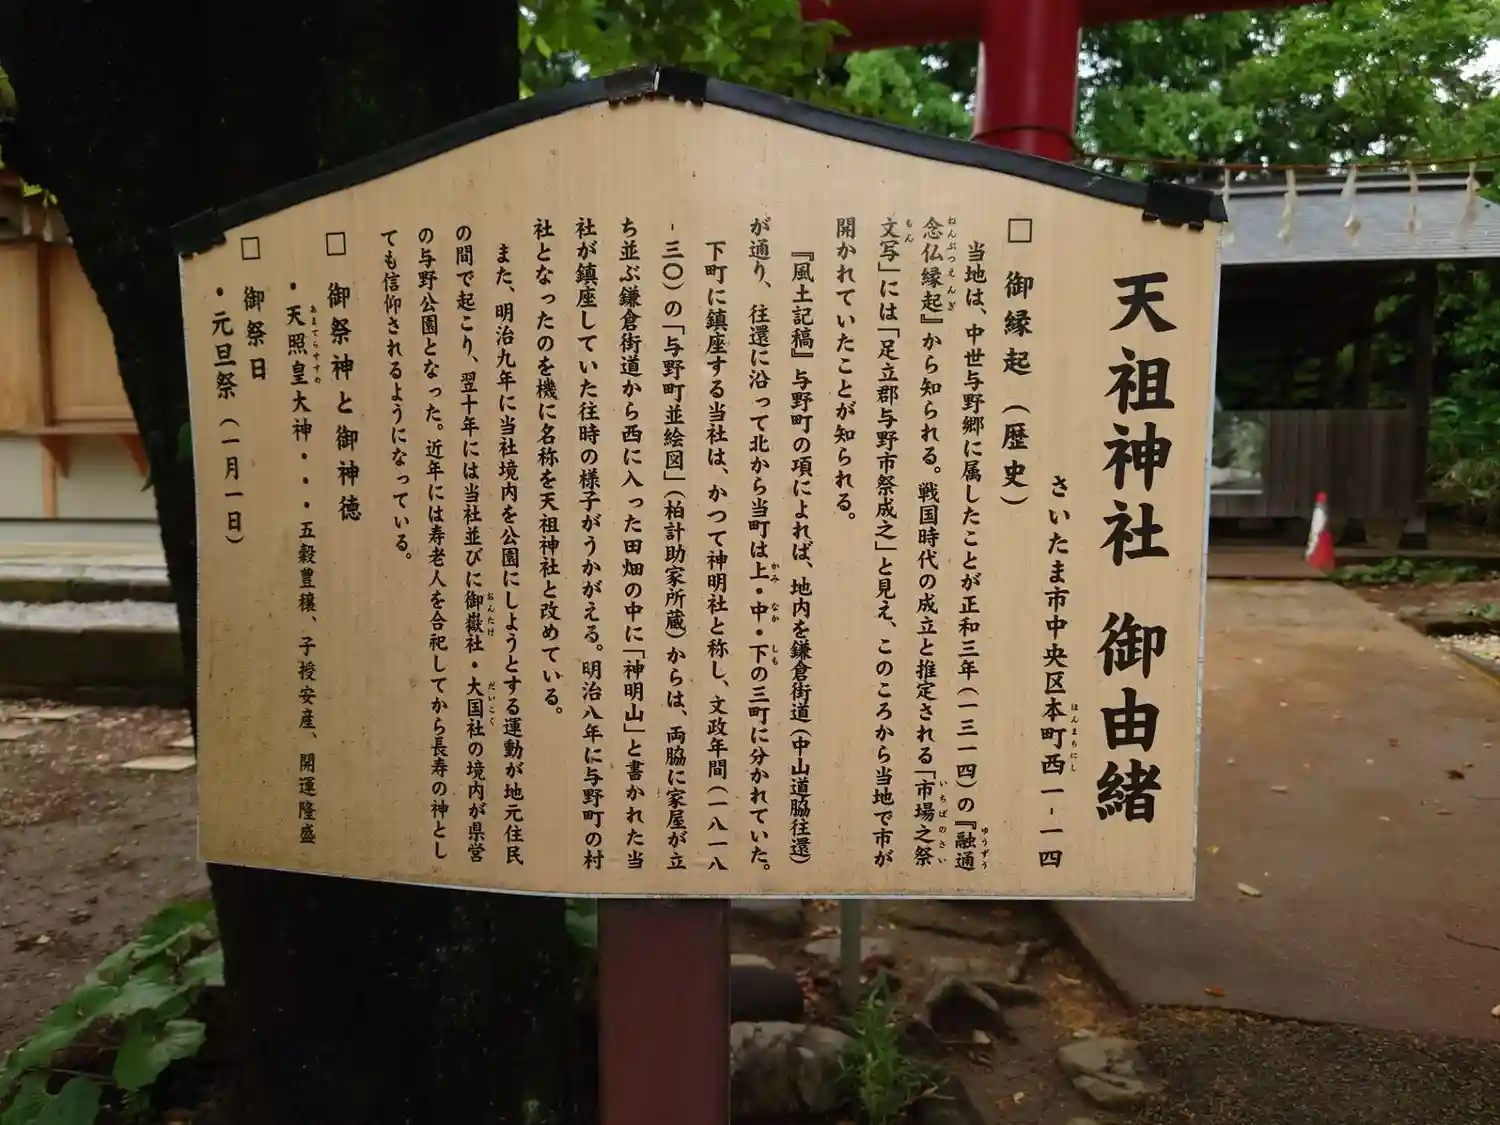 天祖神社 御由緒
さいたま市中央区本町西一-一四
□ 御縁起(歴史)
当地は、中世与野郷に属したことが正和三年(一三一四)の『融通
念仏縁起』から知られる。戦国時代の成立と推定される「市場之祭
文写」には「足立郡与野市祭成之」と見え、このころから当地で市が
開かれていたことが知られる。
『風土記稿』与野町の項によれば、地内を鎌倉街道(中山道脇往還)
が通り、往還に沿って北から当町は上・中・下の三町に分かれていた。
下町に鎮座する当社は、かつて神明社と称し、文政年間(一八一八
-三〇)の「与野町並絵図」(柏計助家所蔵)からは、両脇に家屋が立
ち並ぶ鎌倉街道から西に入った田畑の中に「神明山」と書かれた当
社が鎮座していた往時の様子がうかがえる。明治八年に与野町の村
社となったのを機に名称を天祖神社と改めている。
また、明治九年に当社境内を公園にしようとする運動が地元住民
の間で起こり、翌十年には当社並びに御嶽社・大国社の境内が県営
の与野公園となった。近年には寿老人を合祀してから長寿の神とし
ても信仰されるようになっている。
□ 御祭神と御神徳
・天照皇大神・・・五穀豊穣、子授安産、開運隆盛
□ 御祭日
・元旦祭(一月一日)